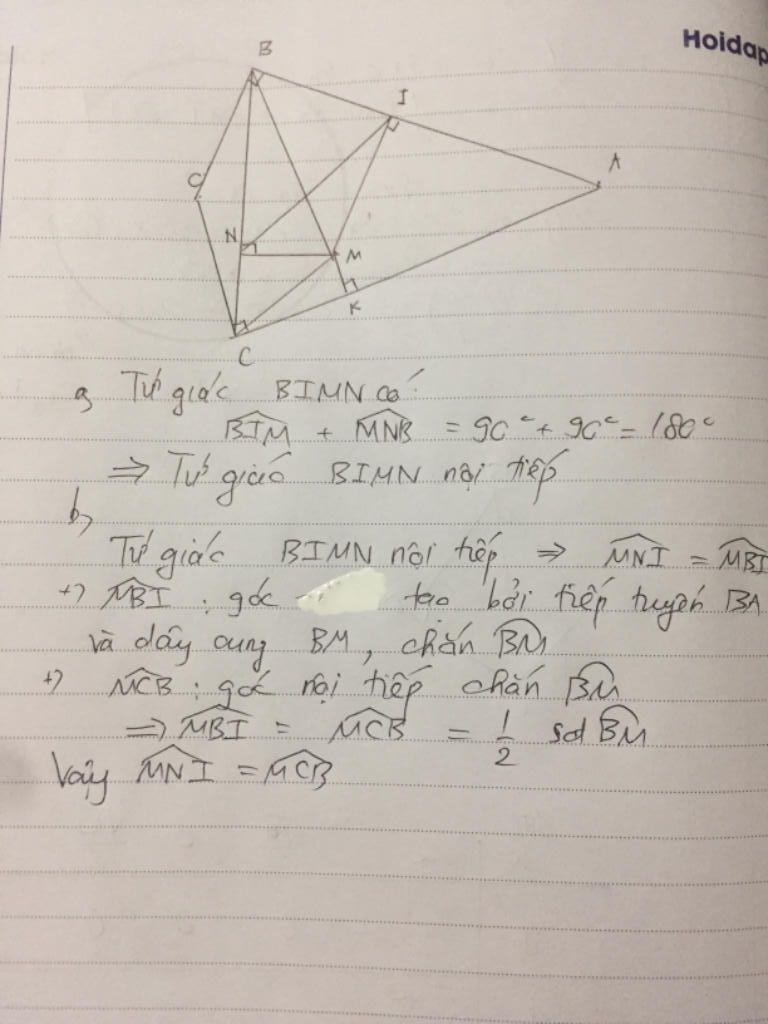 Hoidap
B
I
A
O
N
M
K
C
a, Tứ giác BIMN có:
BIM + MNB = 90° + 90° = 180°
⇒ Tứ giác BIMN nội tiếp
b,
Tứ giác BIMN nội tiếp ⇒ MNI = MBI
+) MBI : góc tạo bởi tiếp tuyến BA
và dây cung BM, chắn BM
+) MCB : góc nội tiếp chắn BM
⇒ MBI = MCB = 1/2 sđ BM
Vậy MNI = MCB